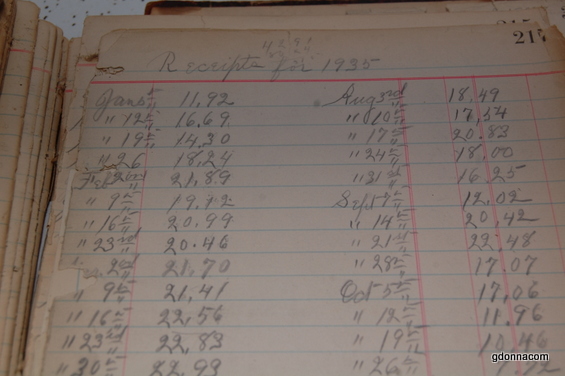 217
Receipts for 1935
Jan 5th 11.92
" 12th 16.69
" 19th 14.30
" 26 18.24
Feb 2nd 21.89
" 9th 19.12
" 16th 20.99
" 23rd 20.46
2nd 21.70
" 9th 21.41
" 16th 22.56
" 23rd 22.83
" 30th 22.93
Aug 3rd 18.49
" 10th 17.54
" 17th 20.83
" 24th 18.00
" 31st 16.25
Sept 7th 12.02
" 14th 20.42
" 21st 22.48
" 28th 17.07
Oct 5th 17.06
" 12th 11.96
" 19th 10.46
" 26th
gdonnacom